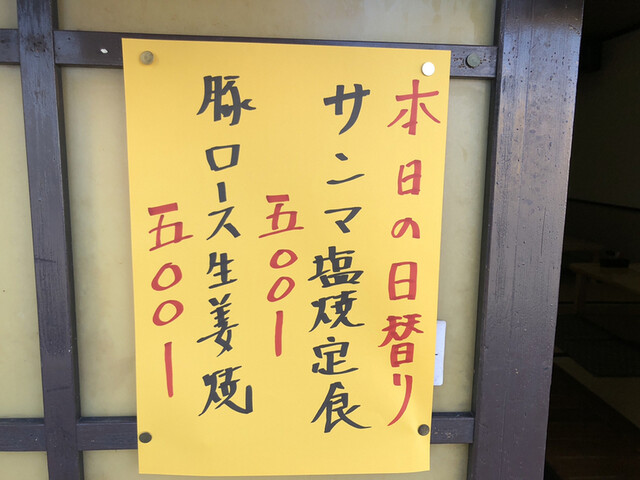 本日の日替り
サンマ塩焼定食
五〇〇ー
豚ロース生姜焼
五〇〇ー